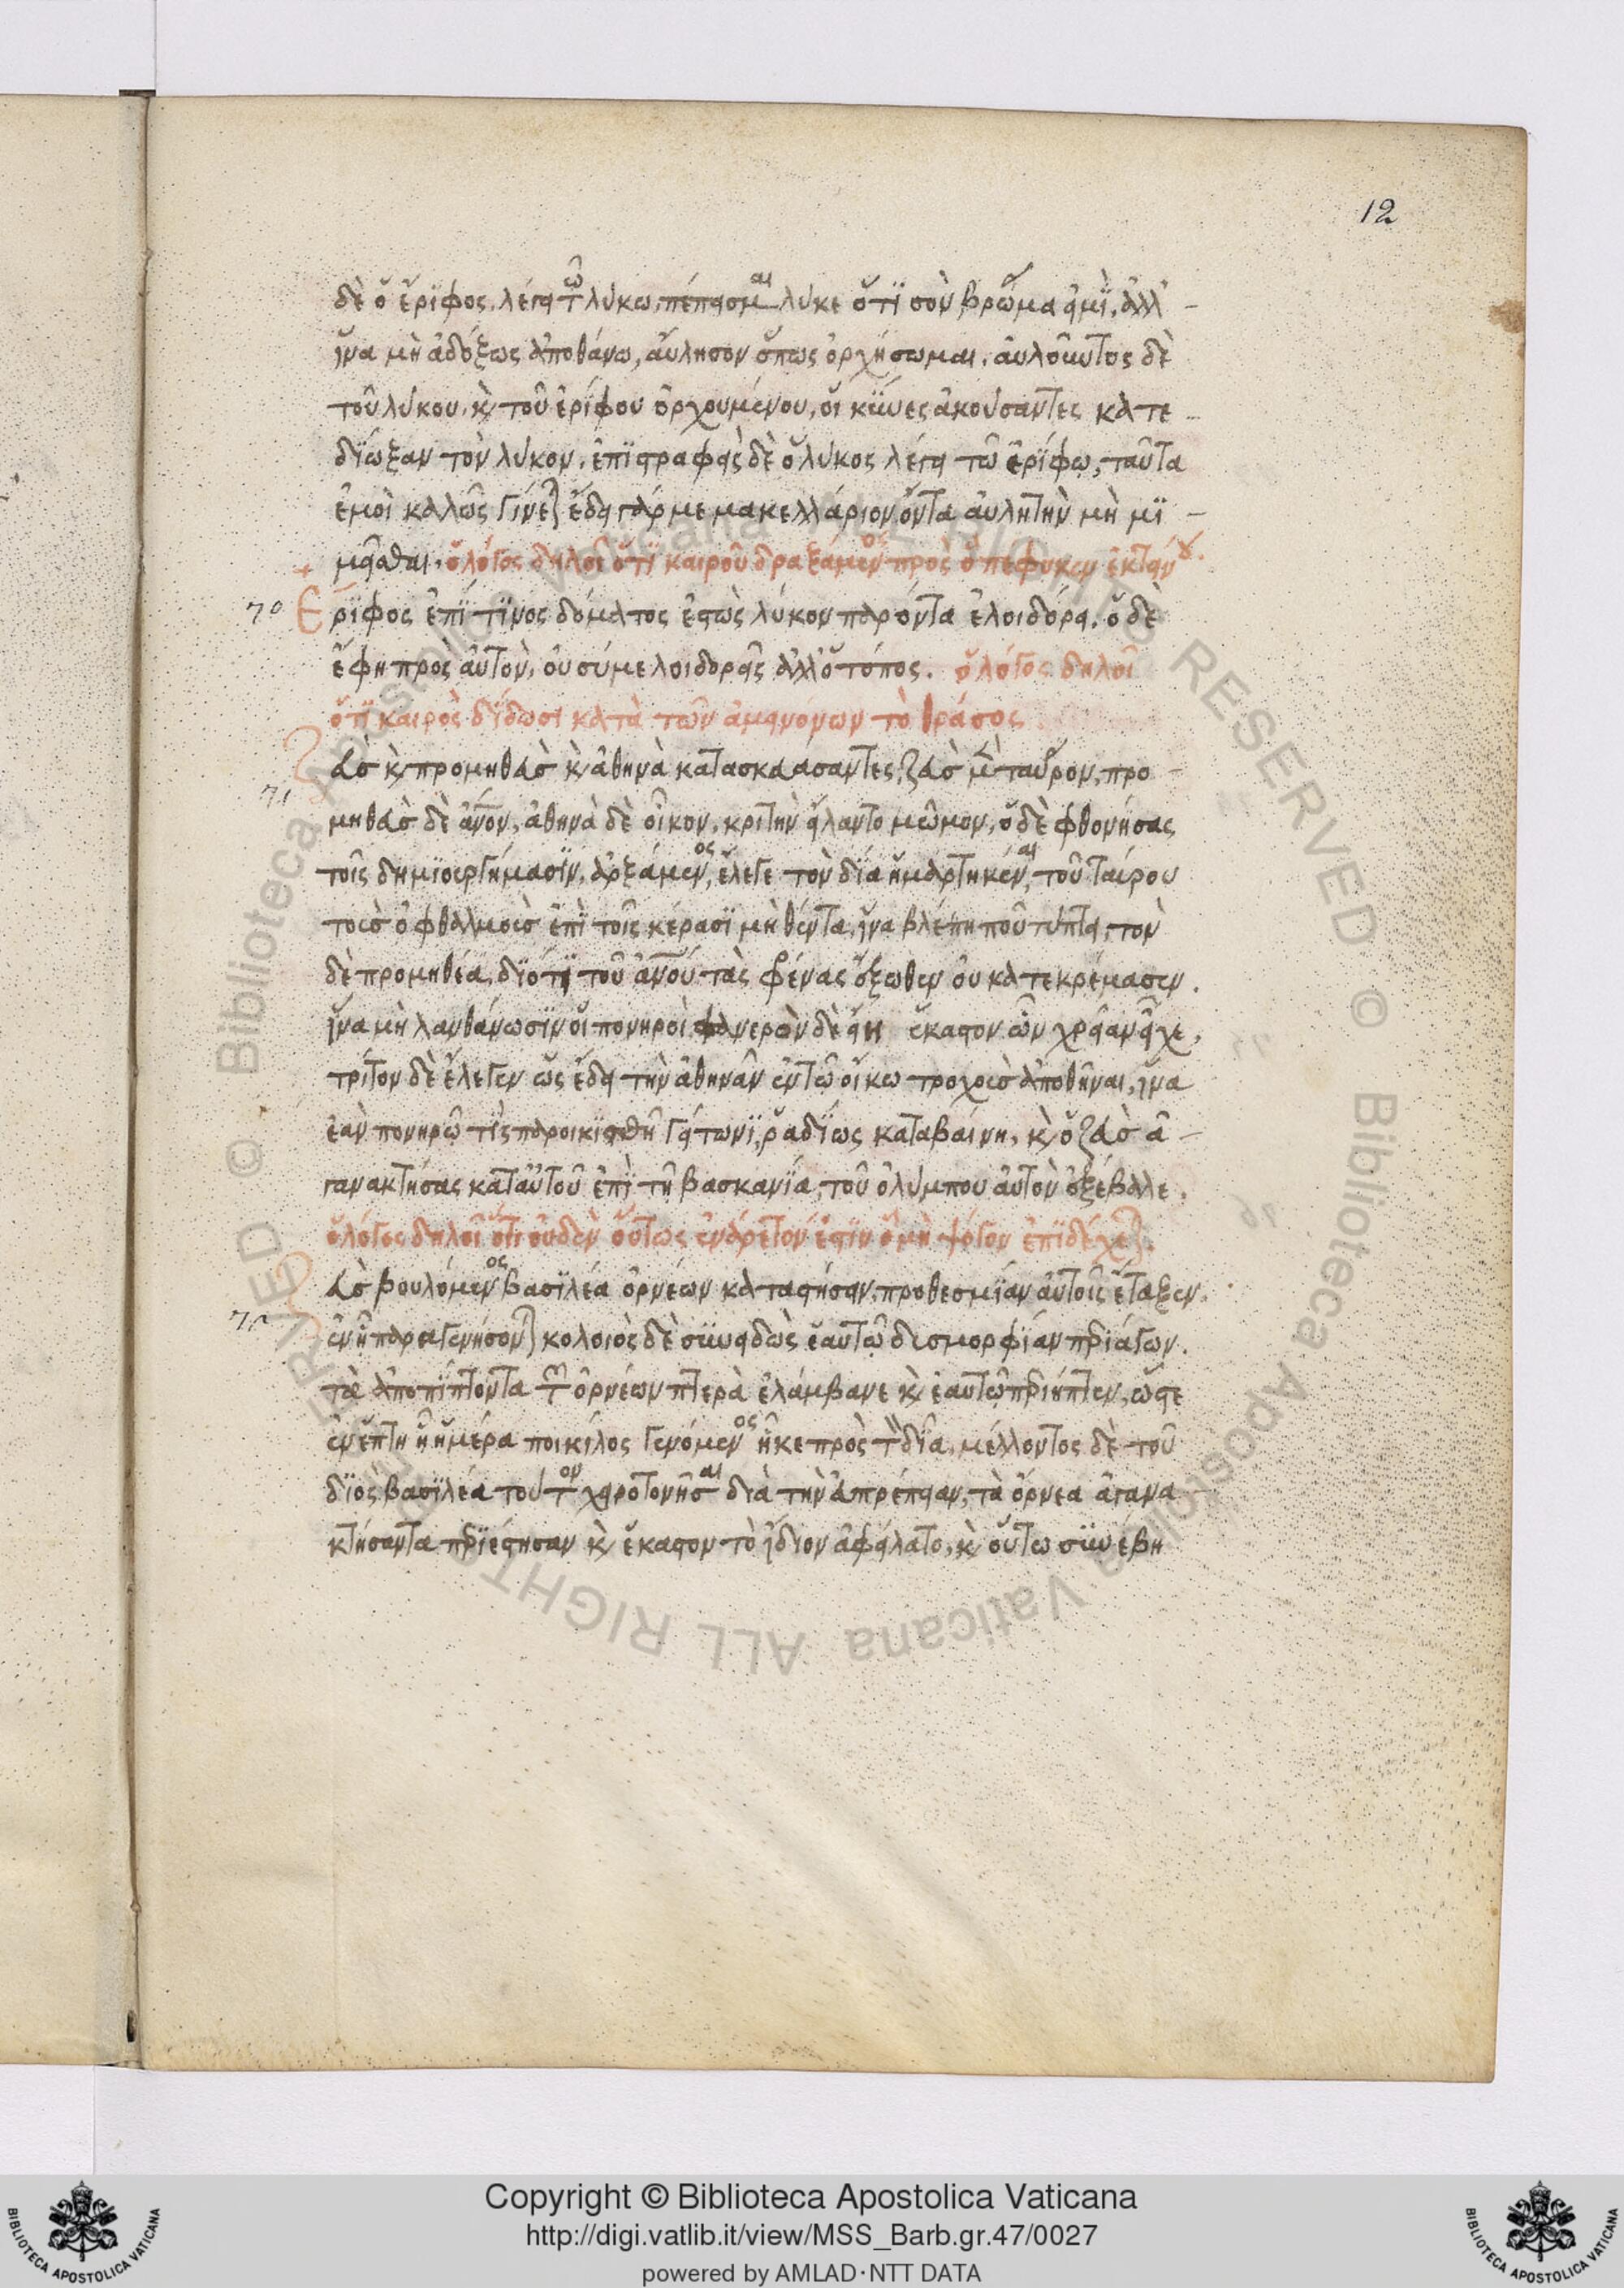 12
δὲ ὁ ἔριφος, λέγει τῶ λύκω, πέπεισμαι λύκε ὅτι σὸν βρῶμα εἰμὶ, ἀλλ' -
ἵνα μὴ ἀδόξως ἀποθάνω, αὔλησον ὅπως ὀρχήσωμαι. αὐλοῦντος δὲ
τοῦ λύκου, κ τοῦ ἐρίφου ὀρχουμένου, οἱ κύνες ἀκούσαντες κατε -
δίωξαν τὸν λύκον. ἐπιστραφεὶς δὲ ὁ λύκος λέγει τῶ ἐρίφω, ταῦτα
ἐμοὶ καλῶς γίνεται ἔδει γάρ με μακελλάριον ὄντα αὐλητὴν μὴ μι -
μεῖσθαι. ὁ λόγος δηλοῖ ὅτι καιροῦ δραξάμενος πρὸς ὃ πέφυκεν ἐκτείνου.
70 Ἔριφος ἐπί τινος δόματος ἑστὼς λύκον παρόντα ἐλοιδόρει. ὁ δὲ
ἔφη πρὸς αὐτὸν, οὐ σύ με λοιδορεῖς ἀλλ' ὁ τόπος. ὁ λόγος δηλοῖ
ὅτι καιρὸς δίδωσι κατὰ τῶν ἀμεινόνων τὸ θράσος.
Ζεὺς κ προμηθεὺς κ ἀθηνᾶ κατασκευάσαντες, ζεὺς μὲν ταῦρον, προ -
71 μηθεὺς δὲ ἄνον, ἀθηνᾶ δὲ οἶκον, κριτὴν εἵλαντο μῶμον, ὁ δὲ φθονήσας
τοῖς δημιουργήμασιν, ἀρξάμενος, ἔλεγε τὸν δία ἡμαρτηκέναι, τοῦ ταύρου
τοὺς ὀφθαλμοὺς ἐπὶ τοῖς κέρασι μὴ θέντα, ἵνα βλέπη ποῦ τύπτει, τὸν
δὲ προμηθέα, διότι τοῦ ἀνου τὰς φρένας ἔξωθεν οὐ κατεκρέμασεν.
ἵνα μὴ λανθάνωσιν οἱ πονηροὶ φανερὸν δὲ εἴη ἕκαστον ὧν χρείαν εἶχε.
τρίτον δὲ ἔλεγεν ὡς ἔδει τὴν ἀθηνᾶν ἐν τῶ οἴκω τροχοὺς ἀποθῆναι, ἵνα
ἐὰν πονηρῶ τις παροικισθῆ γείτωνι, ῥαδίως καταβαίνη, κ ὁ ζεὺς ἀ -
γανακτήσας κατ αὐτοῦ ἐπὶ τῆ βασκανία, τοῦ ὀλύμπου αὐτὸν ἐξέβαλε.
ὁ λόγος δηλοῖ ὅτι οὐδὲν οὕτως ἐνάρετόν ἐστιν ὃ μὴ ψόγον ἐπιδέχεται.
Ζεὺς βουλόμενος βασιλέα ὀρνέων καταστήσειν, προθεσμίαν αὐτοῖς ἔταξεν.
72 ἐν ἧ παραγενήσονται κολοιὸς δὲ συνειδὼς ἑαυτῶ δυσμορφίαν περιάγων.
τὰ ἀποπίπτοντα τῶν ὀρνέων πτερὰ ἐλάμβανε κ ἑαυτῶ περιήπτεν, ὥστε
ἐν ἔπτη ἧ ἡμέρα ποικίλος γενόμενος ἧκε πρὸς τὸν δία, μέλλοντος δὲ τοῦ
διὸς βασιλέα τοῦτον χειροτονῆσαι διὰ τὴν ἀπρέπειαν, τὰ ὄρνεα ἀγανα -
κτήσαντα περιέστησαν κ ἕκαστον τὸ ἴδιον ἀφείλατο, κ οὕτω συνέβη
Copyright © Biblioteca Apostolica Vaticana
http://digi.vatlib.it/view/MSS_Barb.gr.47/0027
powered by AMLAD·NTT DATA
BIBLIOTECA APOSTOLICA VATICANA
BIBLIOTECA APOSTOLICA VATICANA
© Biblioteca Apostolica Vaticana ALL RIGHTS RESERVED